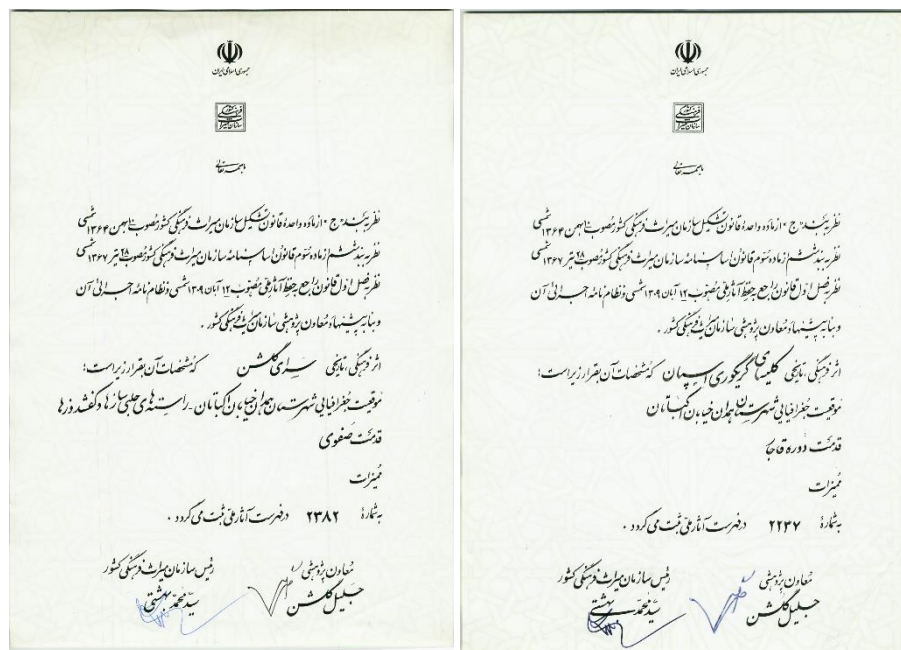 جمهوری اسلامی ایران
سازمان میراث فرهنگی کشور
باسمه تعالی
نظر به بند «ج» از ماده واحدهٔ قانون تشکیل سازمان میراث فرهنگی کشور مصوب ۱۰ بهمن ۱۳۶۴ شمسی
نظر به بند ششم از ماده سوم قانون اساسنامه سازمان میراث فرهنگی کشور مصوب ۲۸ تیر ۱۳۶۷ شمسی
نظر به فصل اول قانون راجع به حفظ آثار ملی مصوب ۱۲ آبان ۱۳۰۹ شمسی و نظام نامه اجرائی آن
و بنا به پیشنهاد معاون پژوهشی سازمان میراث فرهنگی کشور .
اثر فرهنگی ، تاریخی کلیسای گریگوری اسپیان که مشخصات آن بقرار زیر است :
موقعیت جغرافیایی شهرستان همدان خیابان اکباتان
قدمت دوره قاجار
ممیزات
به شمارهٔ ۲۲۳۷ در فهرست آثار ملی ثبت می گردد .
معاون پژوهشی
جلیل گلشن
رئیس سازمان میراث فرهنگی کشور
سید محمد بهشتی
جمهوری اسلامی ایران
سازمان میراث فرهنگی کشور
باسمه تعالی
نظر به بند «ج» از ماده واحدهٔ قانون تشکیل سازمان میراث فرهنگی کشور مصوب ۱۰ بهمن ۱۳۶۴ شمسی
نظر به بند ششم از ماده سوم قانون اساسنامه سازمان میراث فرهنگی کشور مصوب ۲۸ تیر ۱۳۶۷ شمسی
نظر به فصل اول قانون راجع به حفظ آثار ملی مصوب ۱۲ آبان ۱۳۰۹ شمسی و نظام نامه اجرائی آن
و بنا به پیشنهاد معاون پژوهشی سازمان میراث فرهنگی کشور .
اثر فرهنگی ، تاریخی سرای گلشن که مشخصات آن بقرار زیر است :
موقعیت جغرافیایی شهرستان همدان خیابان اکباتان - راسته های حلبی سازها و کفشدوزها
قدمت صفوی
ممیزات
به شمارهٔ ۲۳۸۲ در فهرست آثار ملی ثبت می گردد .
معاون پژوهشی
جلیل گلشن
رئیس سازمان میراث فرهنگی کشور
سید محمد بهشتی